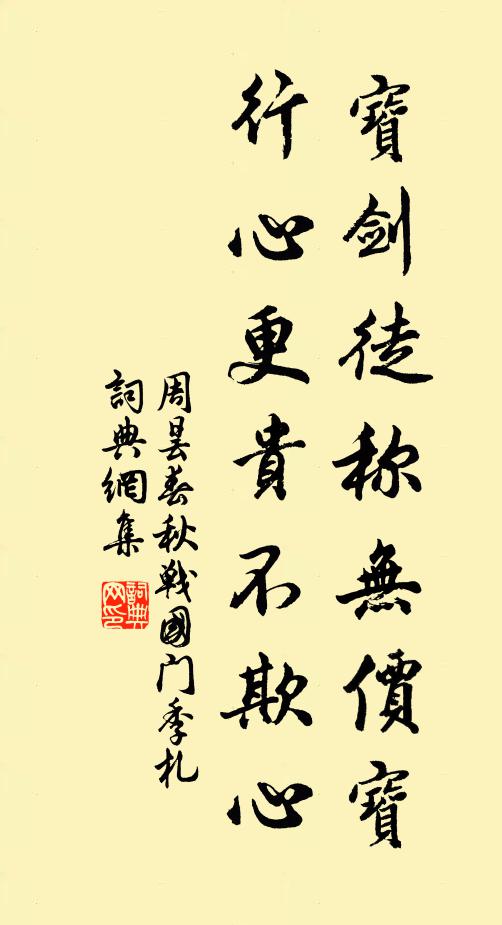 寶劍徒称無價寶
行心更貴不欺心
周昙春秋戰國门季札
詞典網集
詞典網印